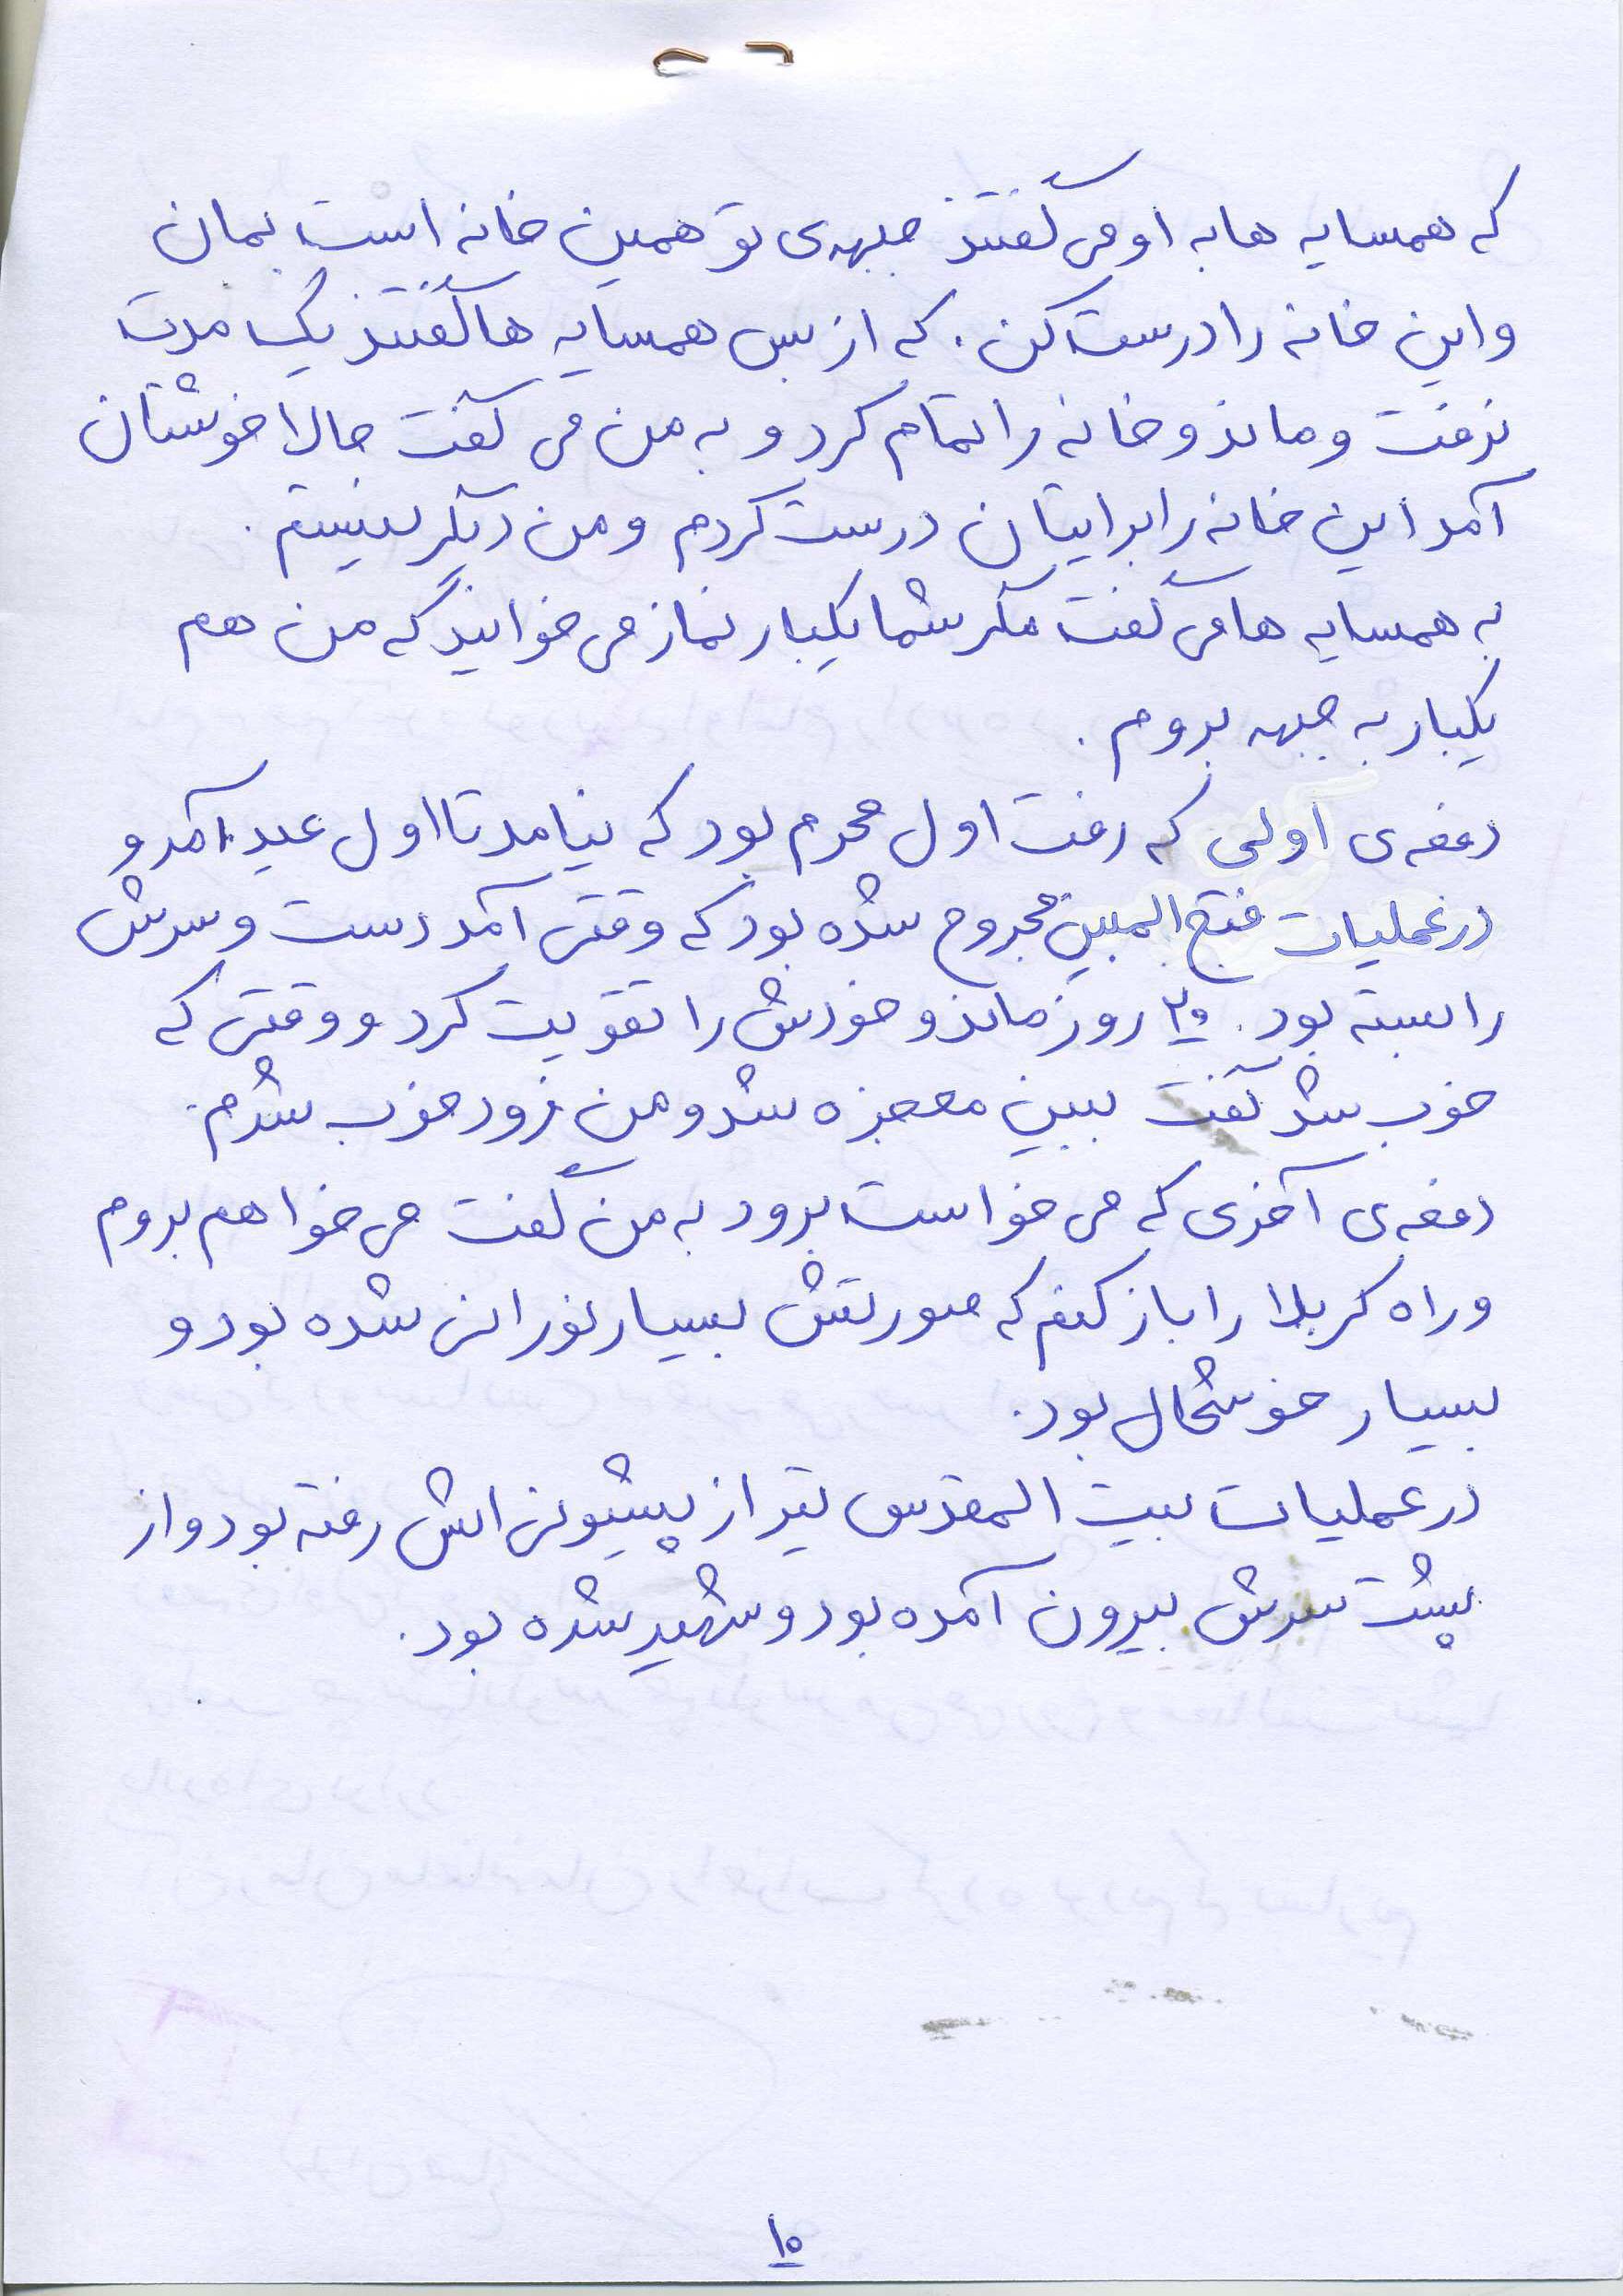 که همسایه ها به او می گفتند جبهه ی تو همین خانه است بمان
و این خانه را درست کن. که از بس همسایه ها گفتند یک مدت
نرفت و ماند و خانه را تمام کرد و به من می گفت حالا خوشتان
آمد این خانه را برایتان درست کردم و من دیگر نیستم.
به همسایه ها می گفت مگر شما یکبار نماز می خوانید که من هم
یکبار به جبهه بروم.
دفعه ی اولی که رفت اول محرم بود که نیامد تا اول عید آمد و
در عملیات فتح المبین مجروح شده بود که وقتی آمد دست و سرش
را بسته بود. ۲۰ روز ماند و خودش را تقویت کرد و وقتی که
خوب شد گفت ببین معجزه شد و من زود خوب شدم.
دفعه ی آخری که می خواست برود به من گفت می خواهم بروم
و راه کربلا را باز کنم که صورتش بسیار نورانی شده بود و
بسیار خوشحال بود.
در عملیات بیت المقدس تیر از پیشونی اش رفته بود و از
پشت سرش بیرون آمده بود و شهید شده بود.
۱۰